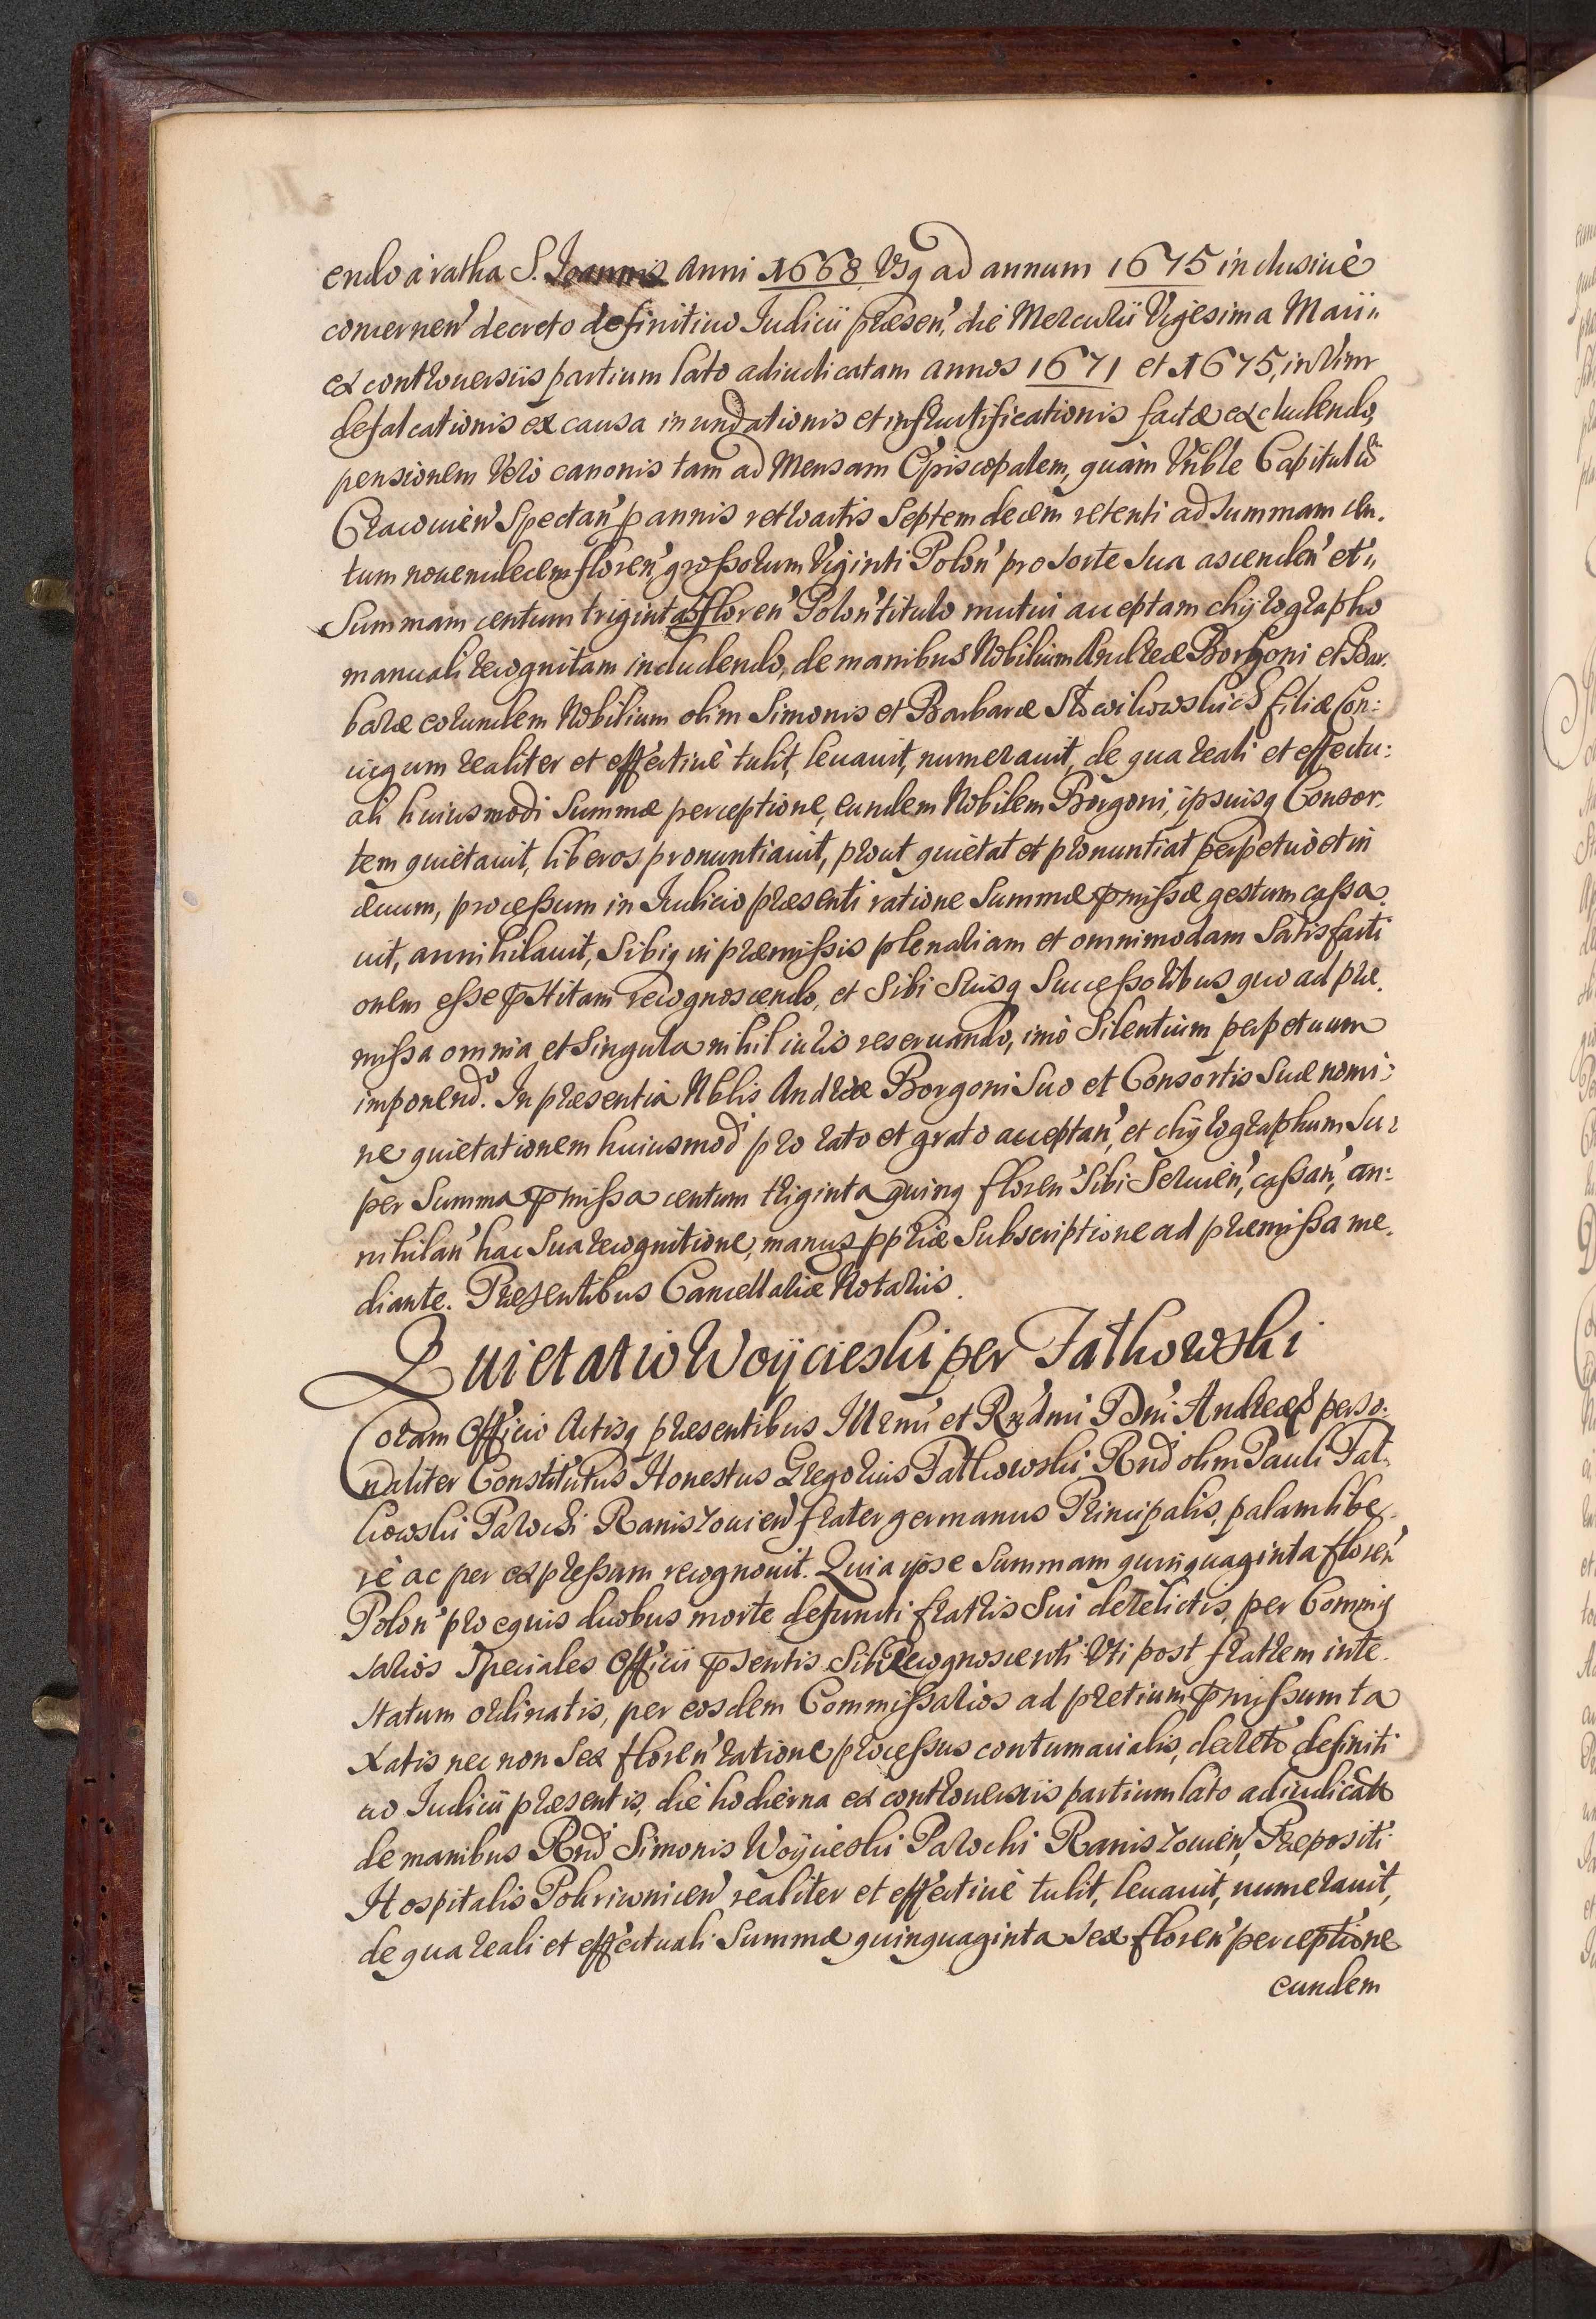 endo à ratha S. Joannis Anni 1668 Vsq ad annum 1675 inclusiuè
concernen' decreto definitiuo Iudicii præsen', die Mercurii Vigesima Maii"
ex controuersiis partium lato adiudicatam annos 1671 et 1675, in Vim
defalcationis ex causa inundationis et infructificationis factæ excludendo,
pensionem Vero canonis tam ad Mensam Episcopalem, quàm Vnble Capitulũ
Cracouien' Spectan' p annis retroactis Septemdecem retenti ad Summam cen.
tum nouemdecem floren', grossorum Viginti Polon' pro sorte sua ascenden' et"
Summam centum triginta floren' Polon' titulo mutui acceptam chÿrographo
manuali recognitam includendo, de manibus Nobilium Andreæ Borgoni et Bar.
baræ eorundem Nobilium olim Simonis et Barbaræ filiæ Con:
iugum realiter et effectiuè tulit, leuauit, numerauit, de qua reali et effectu:
ali huiusmodi Summæ perceptione, eundem Nobilem Borgoni, ipsuisq Consor.
tem quietauit, liberos pronuntiauit, prout quietat et pronuntiat perpetuò et in
æuum, processum in Iudicio præsenti ratione Summæ pmissæ gestum cassa.
uit, annihilauit, Sibiq in præmissis plenariam et omnimodam Satisfacti
onem esse pstitam recognoscendo, et Sibi Suisq Successoribus quo ad præ.
missa omnia et Singula nihil iuris reseruando, imò Silentium perpetuum
imponend'. In præsentia Nblis Andreæ Borgoni Suo et Consortis Suæ nomi:
ne quietationem huiusmod' pro rato et grato acceptan', et chÿrographum Su:
per Summa pmissa centum triginta quinq floren' Sibi Seruien', cassan', an:
nihilan' hac Sua recognitione, manus ppriæ Subscriptione ad præmissa me.
diante. Præsentibus Cancellariæ Notariis.
Quietatio Woÿcieski per Fatkowski
Coram Officio Actisq præsentibus Illrmi et Rndmi Dni Andreæ perso.
naliter Constitutus Honestus Gregorius Fatkowski Rnd' olim Pauli Fat.
kowski Parochi Ranizouien' frater germanus Principalis, palam libe.
rè ac per expressum recognouit. Quia ipse Summam quinquaginta floren'
Polon' pro equis duobus morte defuncti fratris Sui derelictis, per Commis
sarios Speciales Officii psentis Sibi recognoscenti Vti post fratrem inte.
statum ordinatis, per eosdem Commissarios ad pretium pmissum ta
xatis nec non Sex floren' ratione processus contumacialis, decreto definiti
uo Iudicii præsentis, die hodierna ex controuersiis partium lato adiudicat
de manibus Rnd' Simonis Woÿcieski Parochi Ranizouien', Præpositi
Hospitalis realiter et effectiuè tulit, leuauit, numerauit,
de qua reali et effectuali Summæ quinquaginta Sex floren' perceptione
eundem